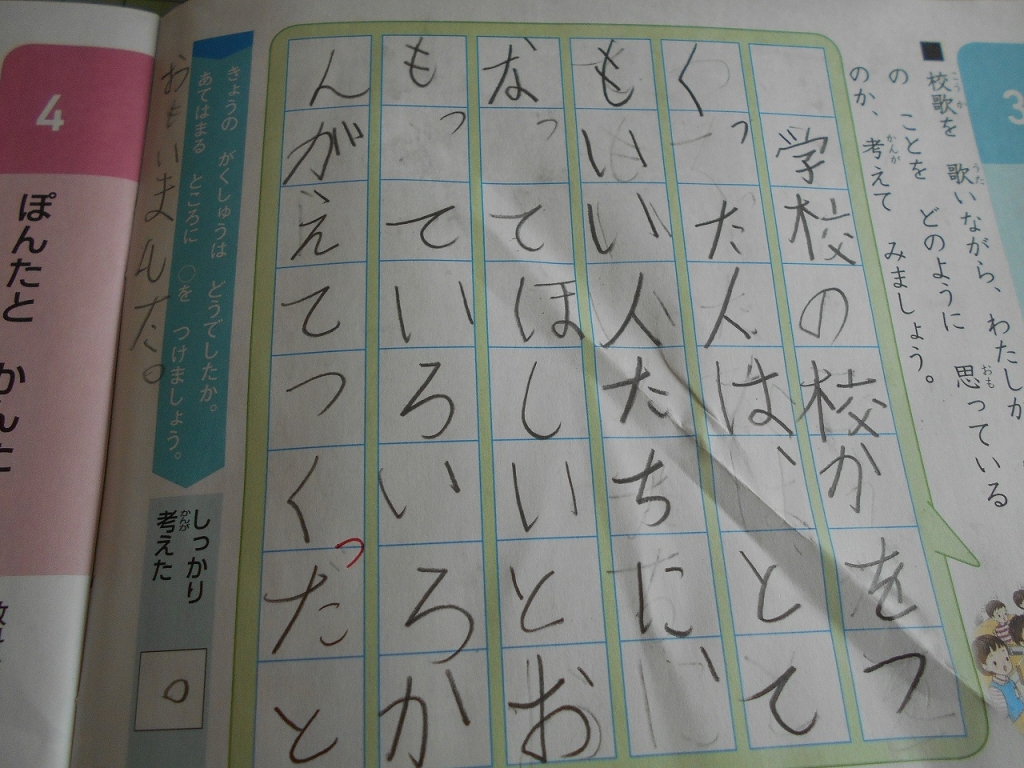 3
こうか うた
■校歌を 歌いながら、わたしが
おも
の ことを どのように 思っている
かんが
のか、考えて みましょう。
学校の校かをつ
くった人は、とて
もいい人たちに、
なってほしいとお
もっていろいろか
んがえてつくったと
おもいました。
きょうの がくしゅうは どうでしたか。
あてはまる ところに ○を つけましょう。
しっかり
かんが
考えた
○
4
ぽんたと かんた